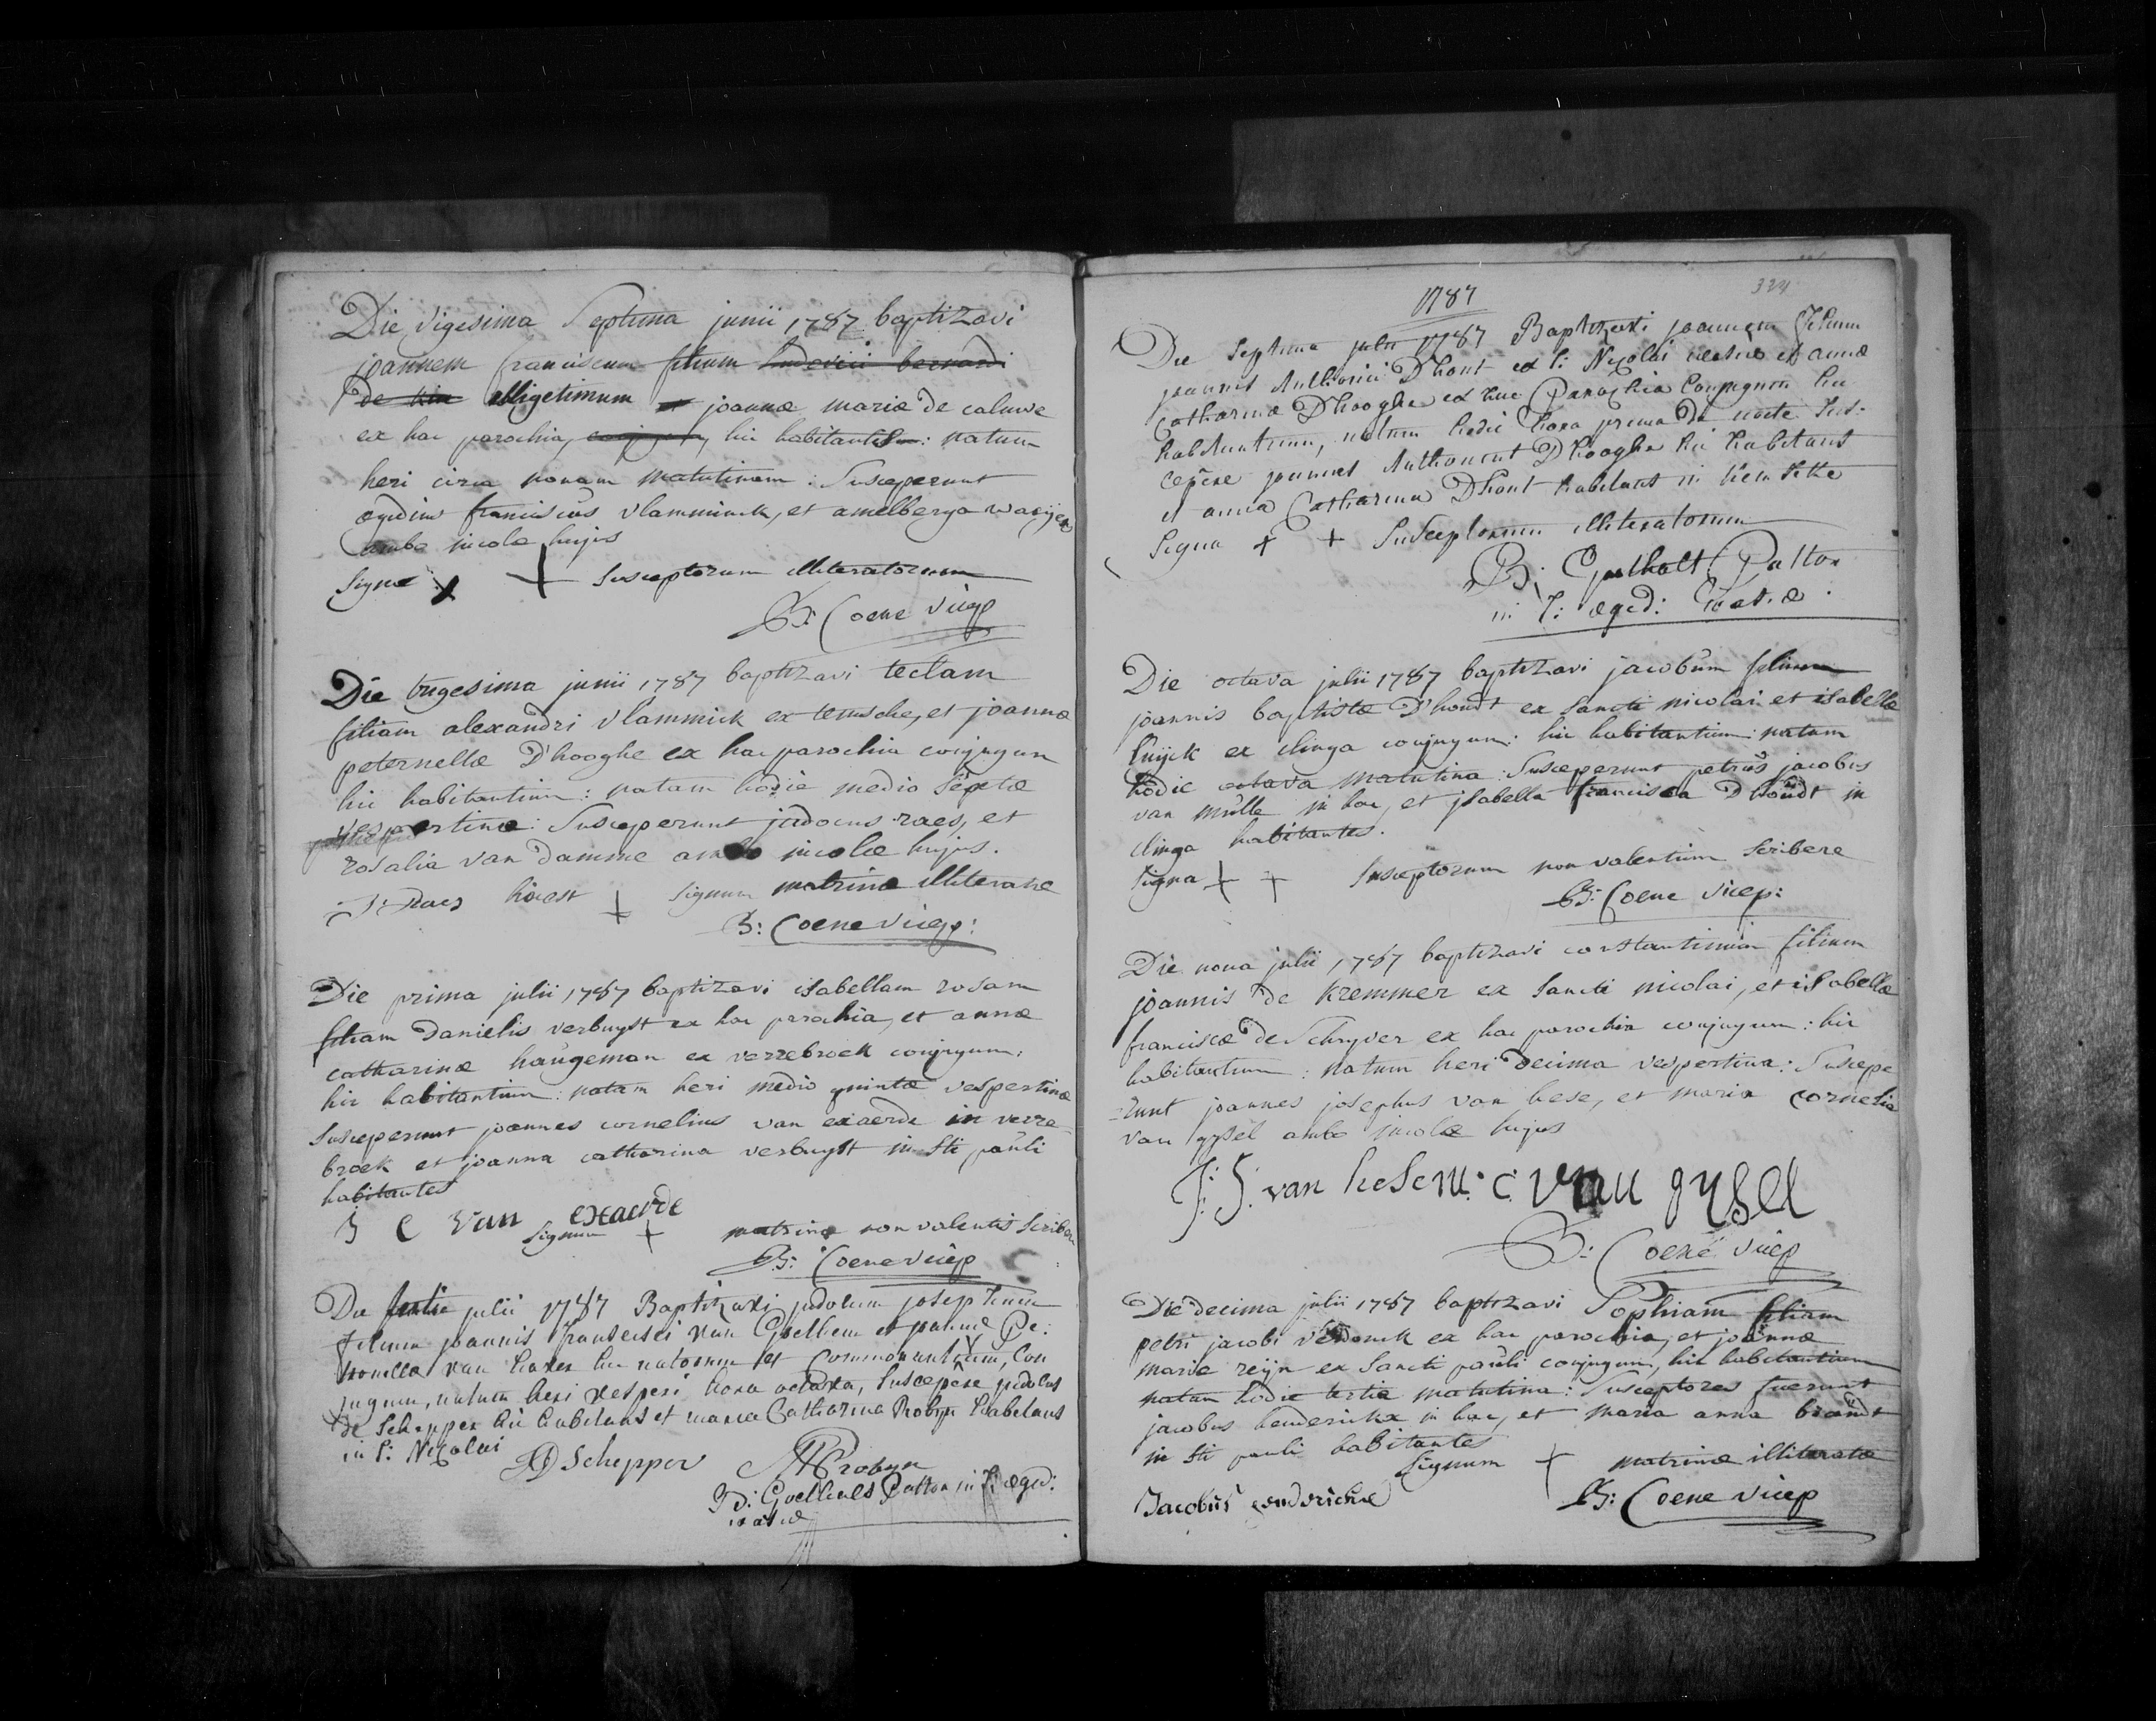 Die vigesima Septima junii 1787 baptizavi
joannem franciscum filium ludovici bernardi
de illigetimum et joannæ mariæ de caluwe
ex hac parochia, conjugum, hic habitantis: natum
heri circa nonam matutinam: Susceperunt
ægidius franciscus vlamminck, et amelberga
ambo incolæ hujus
Signa + + susceptorum illiteratorum
B: Coene vicep
Die trigesima junii 1787 baptizavi teclam
filiam alexandri vlammick ex temsche, et joannæ
peternellæ D'hooghe ex hac parochia conjugum
hic habitantium: natam hodie medio septæ
vespertinæ: Susceperunt judocus raes, et
rosalia van Damme ambo incolæ hujus.
J: Raes + signum matrinæ illiteratæ
B: Coene vicep:
Die prima julii 1787 baptizavi isabellam rosam
filiam Danielis verbuyst ex hac parochia, et annæ
catharinæ haugeman ex verrebroek conjugum:
hic habitantium: natam heri medio quintæ vespertinæ
Susceperunt joannes cornelius van exaerde in verre-
broek et joanna catharina verbuyst in Sti pauli
habitantes
J C van exaerde
signum + matrinæ non valentis scribere
B: Coene vicep
Die julii 1787 Baptizavi judocum josephum
filium joannis Fransisci van Goethem et joannæ Pe:
tronellæ van haver hic natorum et commorantium, Con
jugum, natum heri vesperi hora octava, Suscepêre judocus
De Schepper hic habitans et maria Catharina Robyn habitans
in S: Nicolai
JD Schepper MC robyn
Pastor in S: ægid:
wasiæ
1787
324
Die Septima julii 1787 Baptizavi joannem Filium
joannis Anthonii D'hont ex S: Nicolai wasiæ et annæ
Catharinæ D'hooghe ex hac Parochia Conjugum hic
habitantium, natum hodie hora prima De nocte Sus-
cepêre joannes Anthonius D'hooghe hic habitans
et anna Catharina D'hont habitans in
Signa + + Susceptorum illiteratorum
Pastor
in S: ægid: Wasiæ.
Die octava julii 1787 baptizavi jacobum filium
joannis baptistæ D'hondt ex sancti nicolai et isabellæ
luijck ex clinga conjugum: hic habitantium: natum
hodie octava matutina: Susceperunt petrus jacobus
van mulle in hac, et isabella francisca D'hondt in
clinga habitantes.
Signa + + susceptorum non valentium scribere
B: Coene vicep:
Die nona julii 1787 baptizavi constantinum filium
joannis de kremmer ex sancti nicolai, et isabellæ
franciscæ de Schryver ex hac parochia conjugum: hic
habitantium: natum heri Decima vespertina: Suscepe
=runt joannes josephus van hese, et maria cornelia
van gysel ambo incolæ hujus
J: J: van hese M: C van gysel
B: Coene vicep
Die decima julii 1787 baptizavi Sophiam filiam
petri jacobi verdonck ex hac parochia, et joannæ
mariæ reijn ex sancti pauli conjugum, hic habitantium
natam hodie tertia matutina: Susceptores fuerunt
jacobus henderickx in hac, et maria anna brandt
in Sti pauli habitantes
Signum + matrinæ illiteratæ
Jacobus
B: Coene vicep